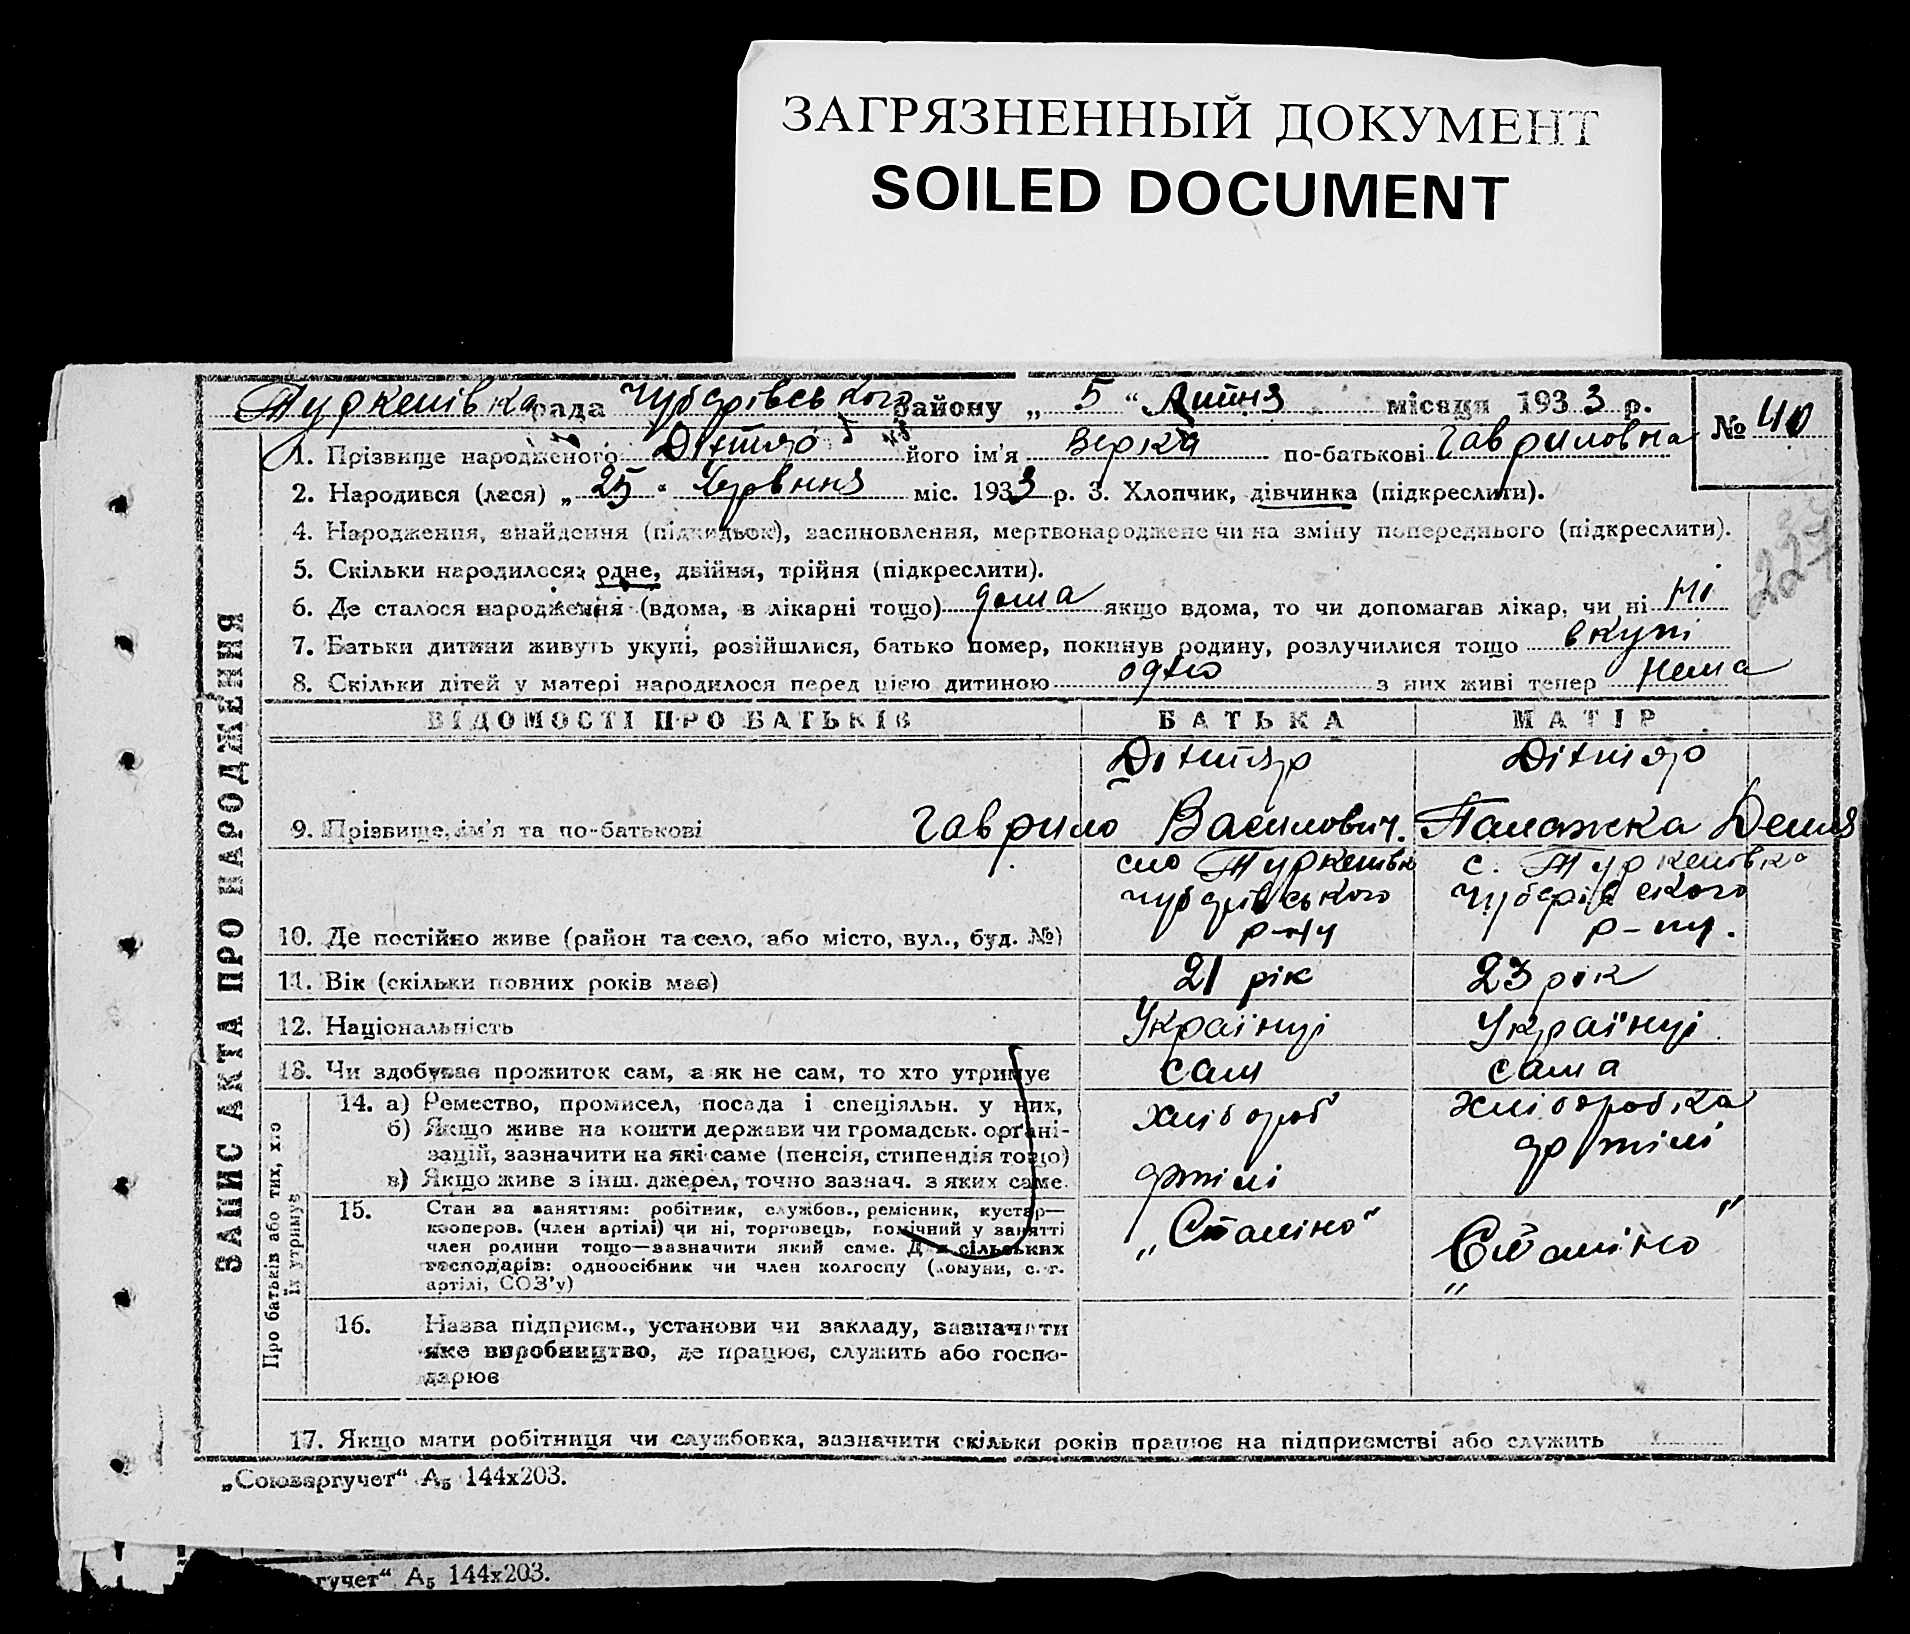 ЗАГРЯЗНЕННЫЙ ДОКУМЕНТ
SOILED DOCUMENT
Туркенівка рада Чубарівського району „ 5 “ Липня місяця 1933 р.
№ 40
1. Прізвище народженого Дітяр його ім'я Верка по-батькові Гавриловна
2. Народився (лася) „ 25 “ Червння міс. 1933 р. 3. Хлопчик, дівчинка (підкреслити).
4. Народження, знайдення (підкидьок), засиновлення, мертвонароджене чи на зміну попереднього (підкреслити).
5. Скільки народилося: одне, двійня, трійня (підкреслити).
6. Де сталося народження (вдома, в лікарні тощо) дома якщо вдома, то чи допомагав лікар, чи ні ні
7. Батьки дитини живуть укупі, розійшлися, батько помер, покинув родину, розлучилися тощо вкупі
8. Скільки дітей у матері народилося перед цією дитиною одно з них живі тепер нема
227
ЗАПИС АКТА ПРО НАРОДЖЕННЯ
ВІДОМОСТІ ПРО БАТЬКІВ БАТЬКА МАТІР
Дітяр Дітяр
9. Прізвище, ім'я та по-батькові Гаврило Василович. Паланжка Демя
село Туркенівк с. Туркенівка
Чубарівського Чубарівского
10. Де постійно живе (район та село, або місто, вул., буд. №) р-ну р-ну.
11. Вік (скільки повних років має) 21 рік 23 рік
12. Національність Українці Українці
13. Чи здобуває прожиток сам, а як не сам, то хто утримує сам сама
Про батьків або тих, хто їх утримує
14. а) Ремество, промисел, посада і спеціяльн. у них, хлібороб хліборобка
б) Якщо живе на кошти держави чи громадськ. органі-
зацій, зазначити на які саме (пенсія, стипендія тощо) артілі
в) Якщо живе з інш. джерел, точно зазнач. з яких саме. артілі
15. Стан за заняттям: робітник, службов., ремісник, кустар—
кооперов. (член артілі) чи ні, торговець, помічний у занятті „Сталіно“ „Сталіно“
член родини тощо—зазначити який саме. Для сільських
господарів: одноосібник чи член колгоспу (комуни, с.-г.
артілі, СОЗ'у)
16. Назва підприєм., установи чи закладу, зазначити
яке виробництво, де працює, служить або госпо-
дарює
17. Якщо мати робітниця чи службовка, зазначити скільки років працює на підприємстві або служить
„Союзоргучет“ А₅ 144х203.
гучет“ А₅ 144х203.